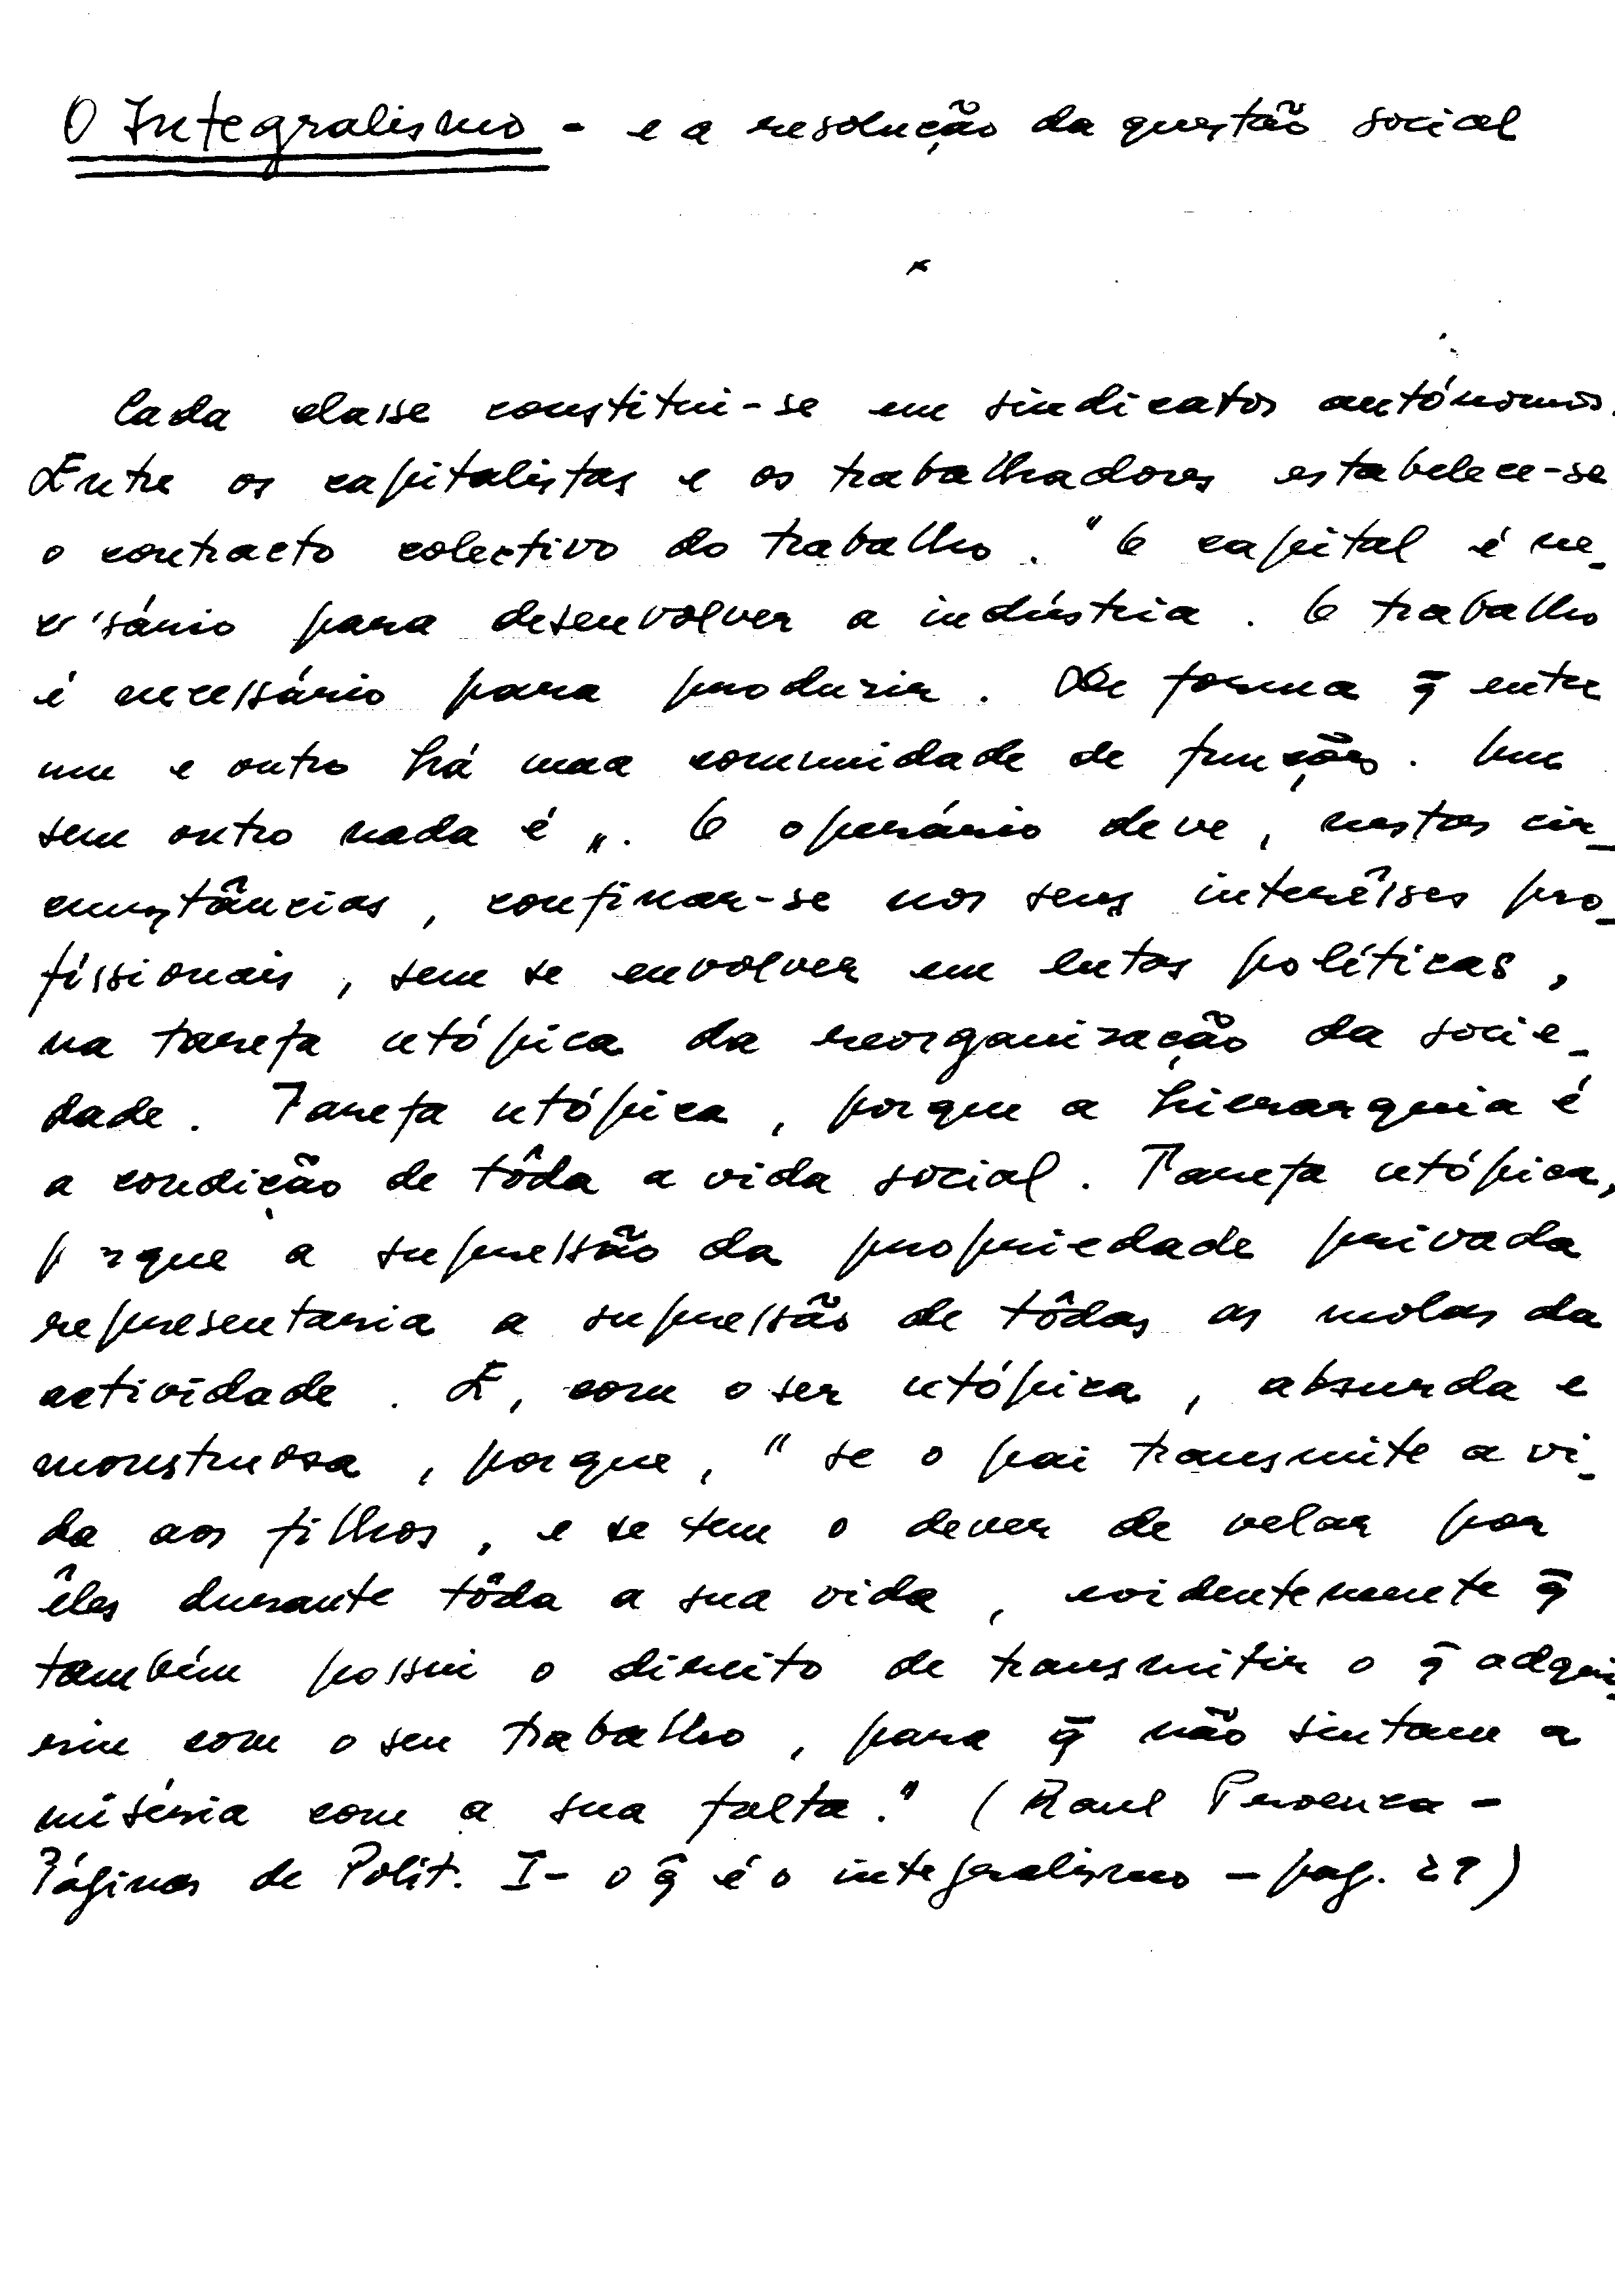 O Integralismo - e a resolução da questão social
Cada classe constitui-se em sindicatos autónomos.
Entre os capitalistas e os trabalhadores estabelece-se
o contracto colectivo do trabalho. "O capital é ne-
cessário para desenvolver a indústria. O trabalho
é necessário para produzir. De forma q̄ entre
um e outro há uma comunidade de funções. Um
sem outro nada é". O operário deve, nestas cir-
cunstâncias, confinar-se nos seus interêsses pro-
fissionais, sem se envolver em lutas políticas,
na tarefa utópica da reorganização da socie-
dade. Tarefa utópica, porque a hierarquia é
a condição de tôda a vida social. Tarefa utópica,
porque a supressão da propriedade privada
representaria a supressão de tôdas as molas da
actividade. E, com o ser utópica, absurda e
monstruosa, porque, "se o pai transmite a vi-
da aos filhos, e se tem o dever de velar por
êles durante tôda a sua vida, evidentemente q̄
também possui o direito de transmitir o q̄ adqui-
riu com o seu trabalho, para q̄ não sintam a
miséria com a sua falta." (Raul Proença -
Páginas de Polít. I - o q̄ é o integralismo - pag.